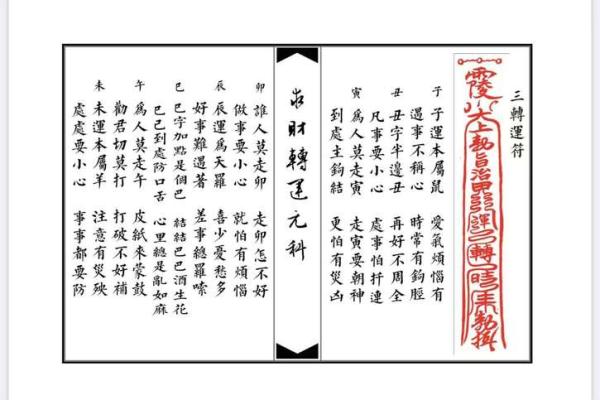 三轉運符
靈
太上勅
運
轉
時來
子 子運本屬鼠 愛氣煩惱有
遇事不稱心 時常有鉤脛
丑 丑字半邊丑 再好不周全
凡事要小心 處事怕扦連
寅 為人莫走寅 走寅要朝神
到處主鉤結 更怕有災凶
求財轉運元科
卯 誰人莫走卯 走卯怎不好
做事要小心 就怕有煩惱
辰 辰運為天羅 喜少憂愁多
好事難遇著 差事總羅嗦
巳 巳字加點是個巴 結結巴巴酒生花
巳已到處防口舌 心里總是亂如麻
午 為人莫走午 皮紙來蒙鼓
勸君切莫打 打破不好補
未 未運本屬羊 注意有災殃
處處要小心 事事都要防